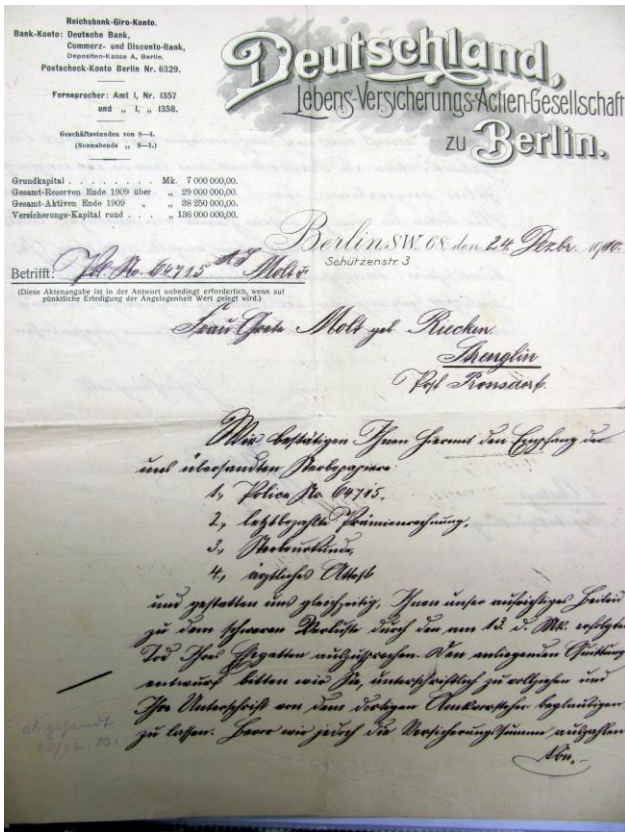 Reichsbank-Giro-Konto.
Bank-Konto: Deutsche Bank,
Commerz- und Disconto-Bank,
Depositen-Kasse A, Berlin.
Postscheck-Konto Berlin Nr. 6329.
Fernsprecher: Amt I, Nr. 1357
und „ I, „ 1358.
Geschäftsstunden von 8—4.
(Sonnabends „ 8—1.)
Grundkapital . . . . . . . . Mk. 7 000 000,00.
Gesamt-Reserven Ende 1909 über „ 29 000 000,00.
Gesamt-Aktiven Ende 1909 „ „ 38 250 000,00.
Versicherungs-Kapital rund . . . „ 136 000 000,00.
Deutschland,
Lebens-Versicherungs-Actien-Gesellschaft
zu Berlin.
Berlin SW. 68, den 24. Dezbr. 1910.
Schützenstr. 3
Betrifft: Pol. No. 64715 Molt
(Diese Aktenangabe ist in der Antwort unbedingt erforderlich, wenn auf
pünktliche Erledigung der Angelegenheit Wert gelegt wird.)
Frau Grete Molt geb. Ruecken.
Strenglin
Post Pronsdorf.
Wir bestätigen Ihnen hiermit den Empfang der
uns übersandten Sterbepapiere:
1., Police No. 64715,
2., letztbezahlte Prämienrechnung,
3., Sterbeurkunde,
4., ärztliches Attest
und gestatten uns gleichzeitig, Ihnen unser aufrichtiges Beileid
zu dem schweren Verluste durch den am 13. d. Mts. erfolgten
Tod Ihres Ehegatten auszusprechen. Den anliegenden Quittungs-
entwurf bitten wir Sie, unterschriftlich zu vollziehen und
Ihre Unterschrift von dem dortigen Amtsvorsteher beglaubigen
zu lassen. Bevor wir jedoch die Versicherungssumme auszahlen
abgesandt
30/12.10.